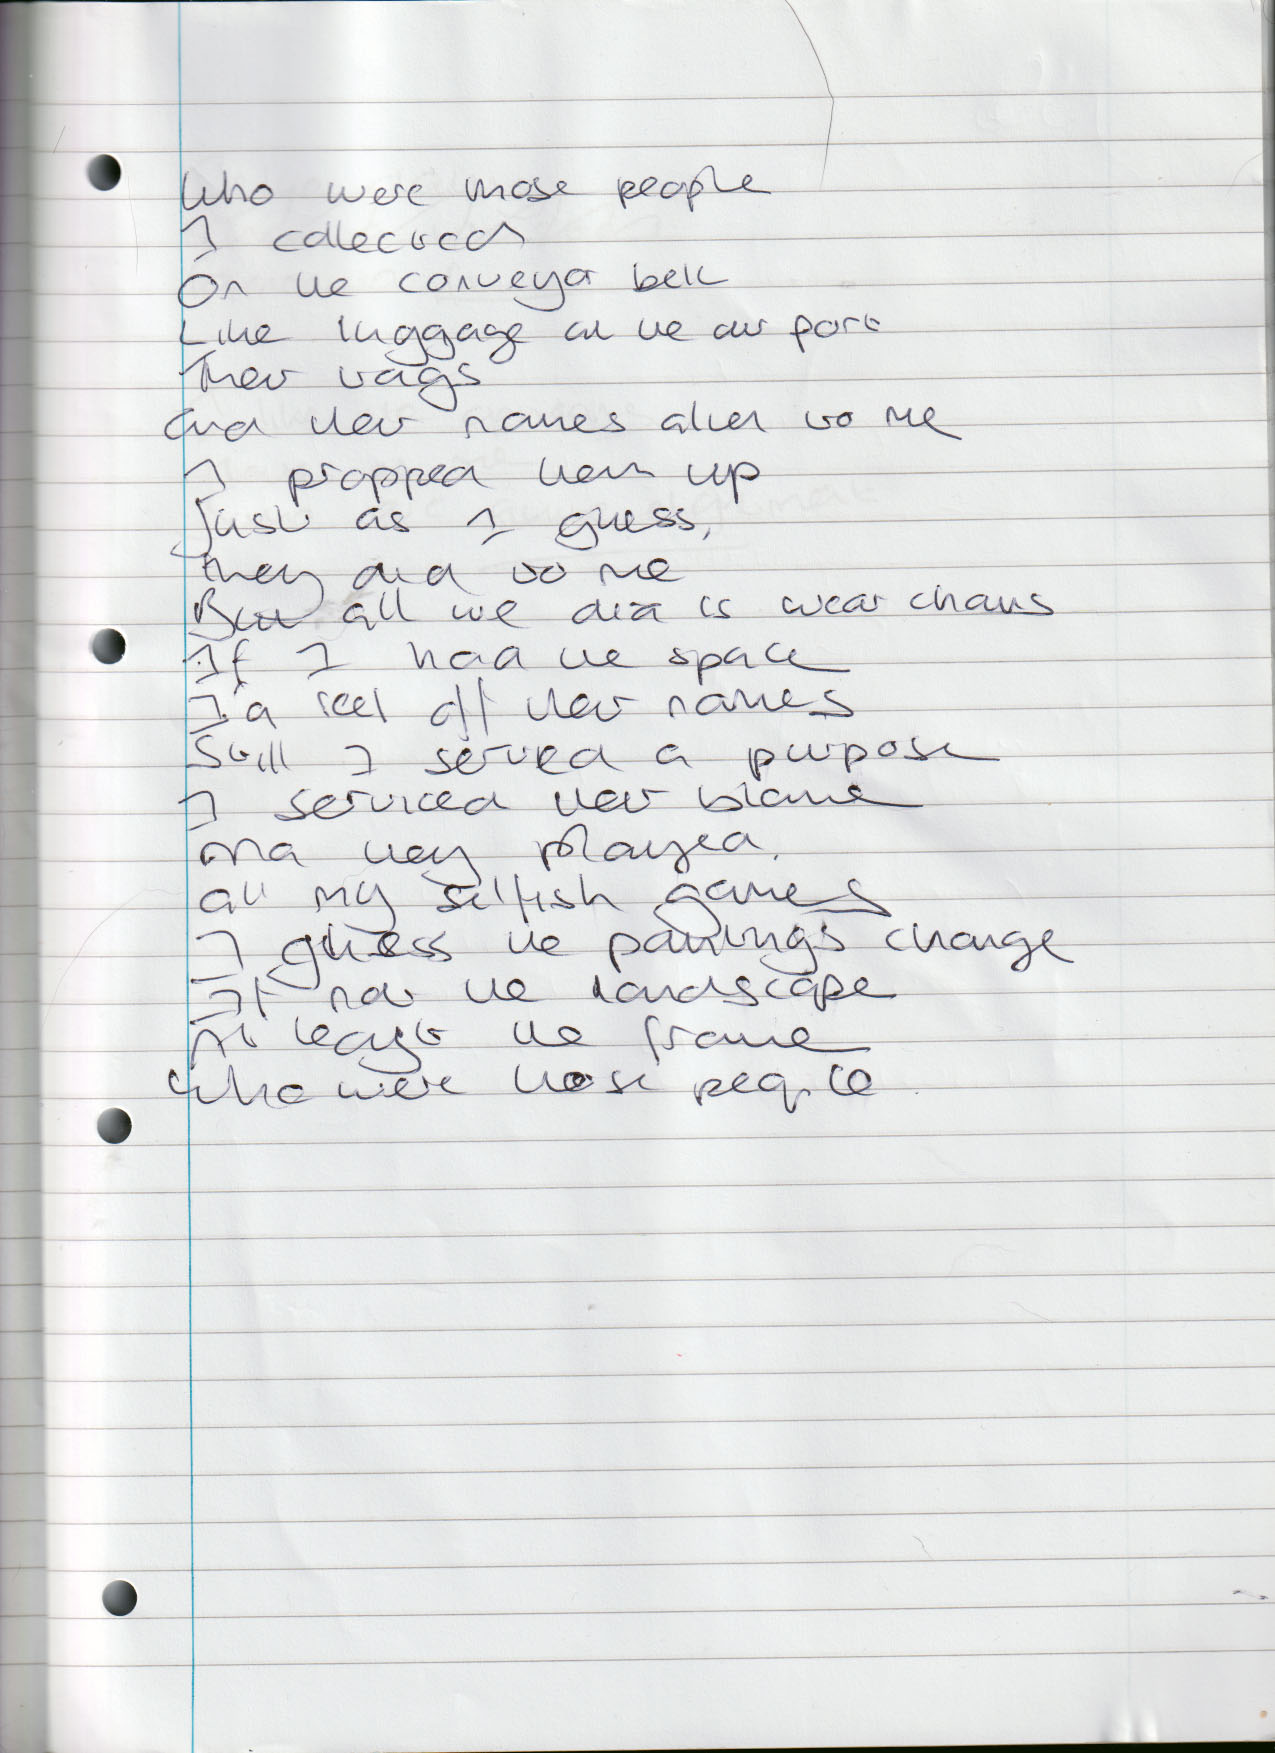 Who were those people
I collected
On the conveyor belt
Like luggage at the air port
Their tags
and their names alien to me
I propped them up
Just as I guess,
they did to me
But all we did is wear chains
If I had the space
I'd reel off their names
Still I served a purpose
I serviced their blame
and they played.
all my selfish games
I guess the paintings change
If not the landscape
At least the frame
Who were those people.